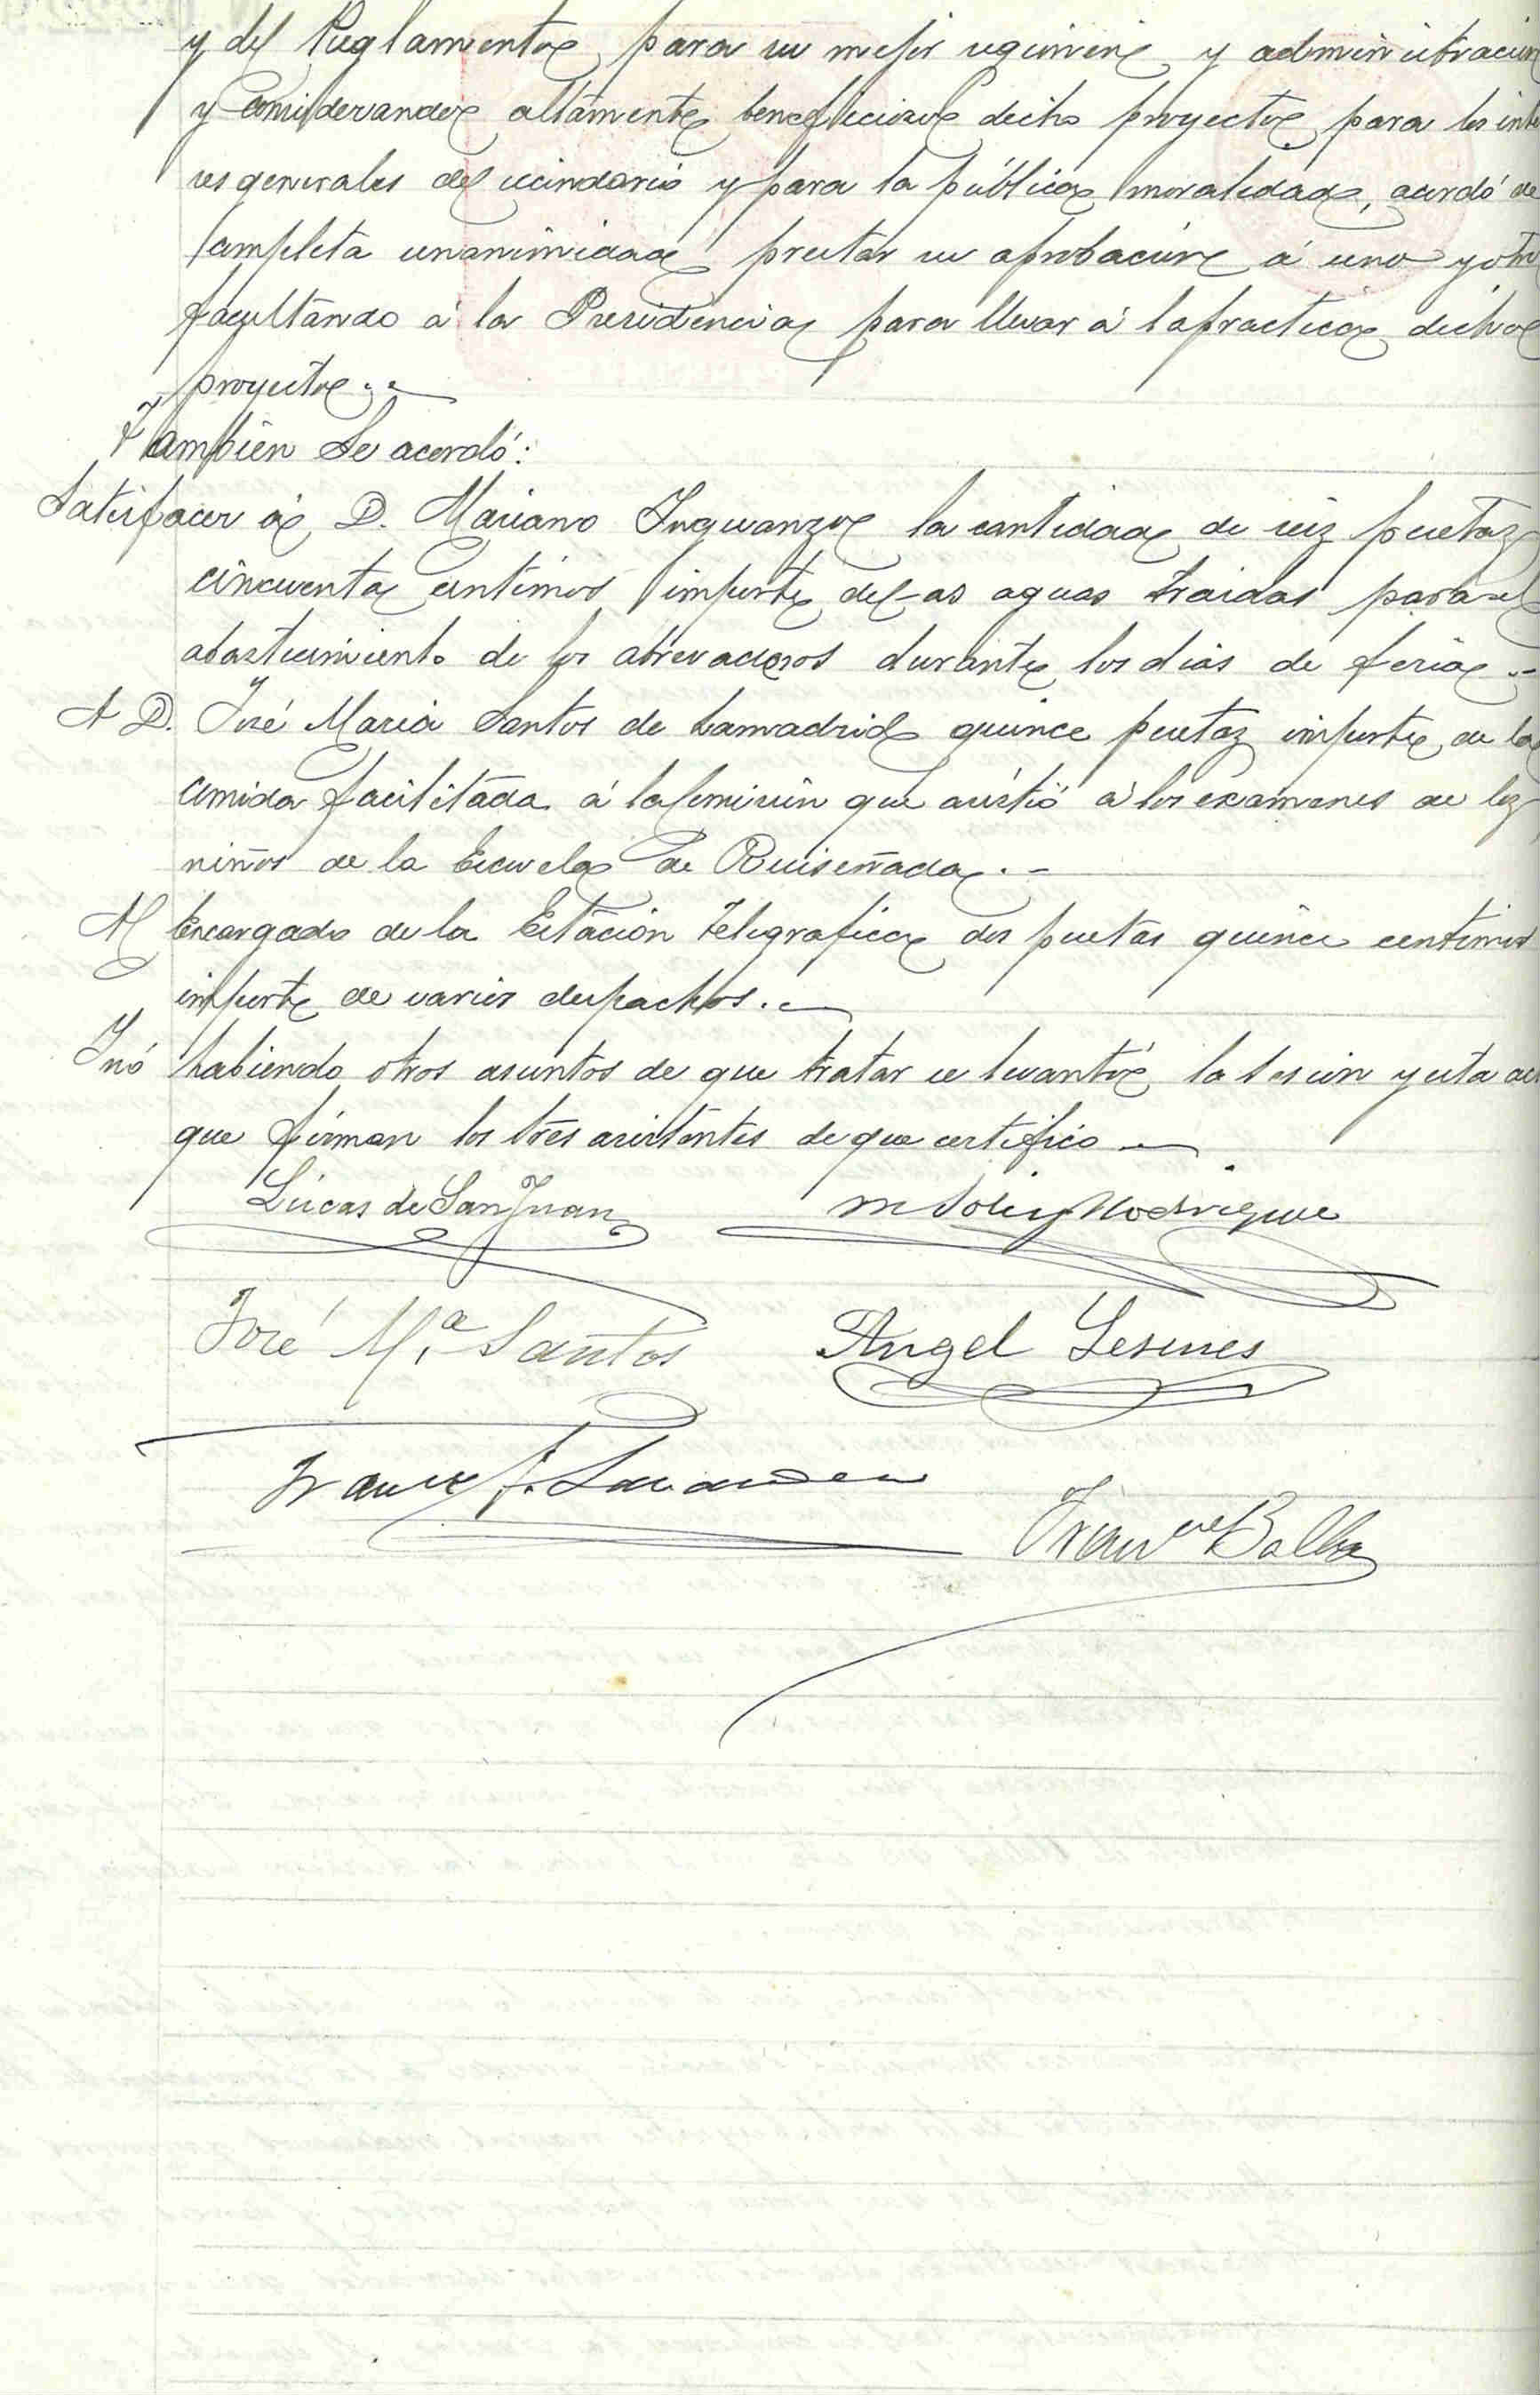 y del Reglamento para su mejor regimen y administracion
y considerando altamente beneficioso dicho proyecto para los inte
res generales del vecindario y para la pública moralidad, acordó de
completa unanimidad prestar su aprobación á uno y otro
facultando á la Presidencia para llevar á la practica dicho
proyecto.
Tambien se acordó:
Satisfacer á D. Mariano Inguanzo la cantidad de seiz pesetaz
cincuenta centimos importe de las aguas traidas para el
abastecimiento de los abrevaderos durante los dias de feria.
A D. José Maria Santos de Lamadrid quince pesetaz importe de la
comida facilitada á la Comisión que asistió a los examenes de los
niños de la Escuela de Ruiseñada.
Al Encargado de la Estación Telegrafica dos pesetas quince centimos
importe de varios despachos.
Y nó habiendo otros asuntos de que tratar se levantó la sesion y esta ac
que firman los tres asistentes de que certifico
Lúcas de San Juan
M Solis y Rodrigue
José M.ª Santos
Angel Lesmes
Fran.co F.
Fran.co Balbas